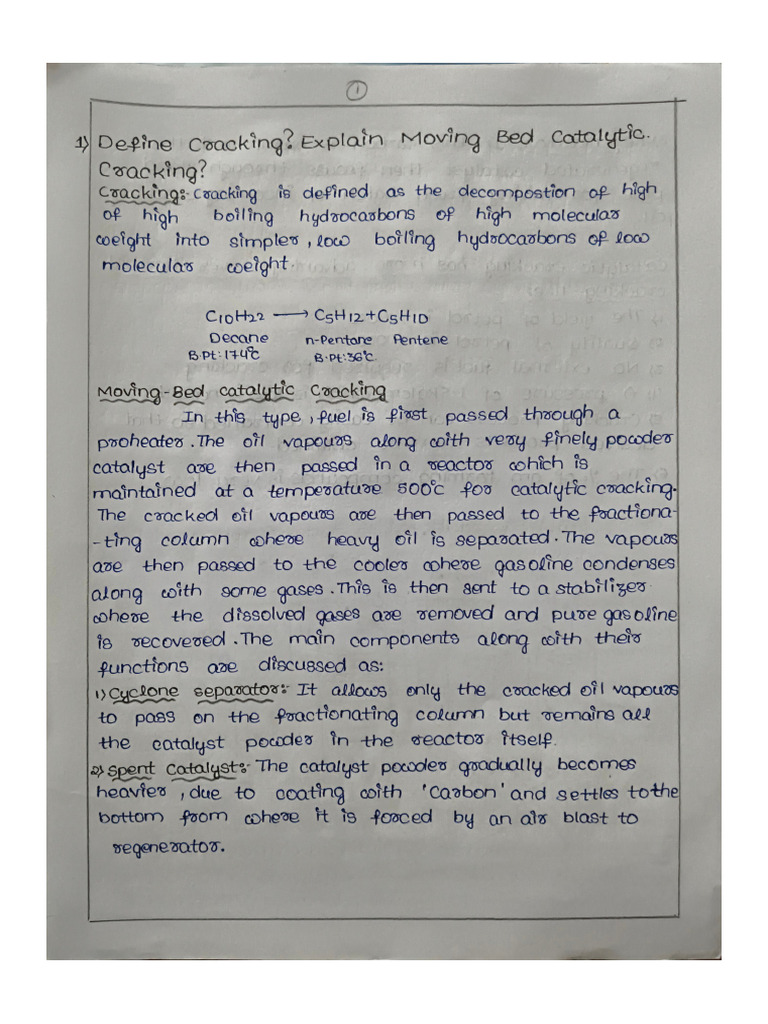 1
1) Define Cracking? Explain Moving Bed Catalytic.
Cracking?
Cracking:- Cracking is defined as the decompostion of high
of high boiling hydrocarbons of high molecular
weight into simpler, low boiling hydrocarbons of low
molecular weight.
C10H22 ⟶ C5H12+C5H10
Decane n-Pentane Pentene
B.Pt:174°C B.Pt:36°C
Moving-Bed catalytic Cracking
In this type, fuel is first passed through a
proheater. The oil vapours along with very finely powder
catalyst are then passed in a reactor which is
maintained at a temperature 500°c for catalytic cracking.
The cracked oil vapours are then passed to the fractiona-
-ting column where heavy oil is separated. The vapours
are then passed to the cooler where gasoline condenses
along with some gases. This is then sent to a stabilizer
where the dissolved gases are removed and pure gasoline
is recovered. The main components along with their
functions are discussed as:
1) Cyclone separator:- It allows only the cracked oil vapours
to pass on the fractionating column but remains all
the catalyst powder in the reactor itself.
2) Spent Catalyst:- The catalyst powder gradually becomes
heavier, due to coating with 'Carbon' and settles to the
bottom from where it is forced by an air blast to
regenerator.